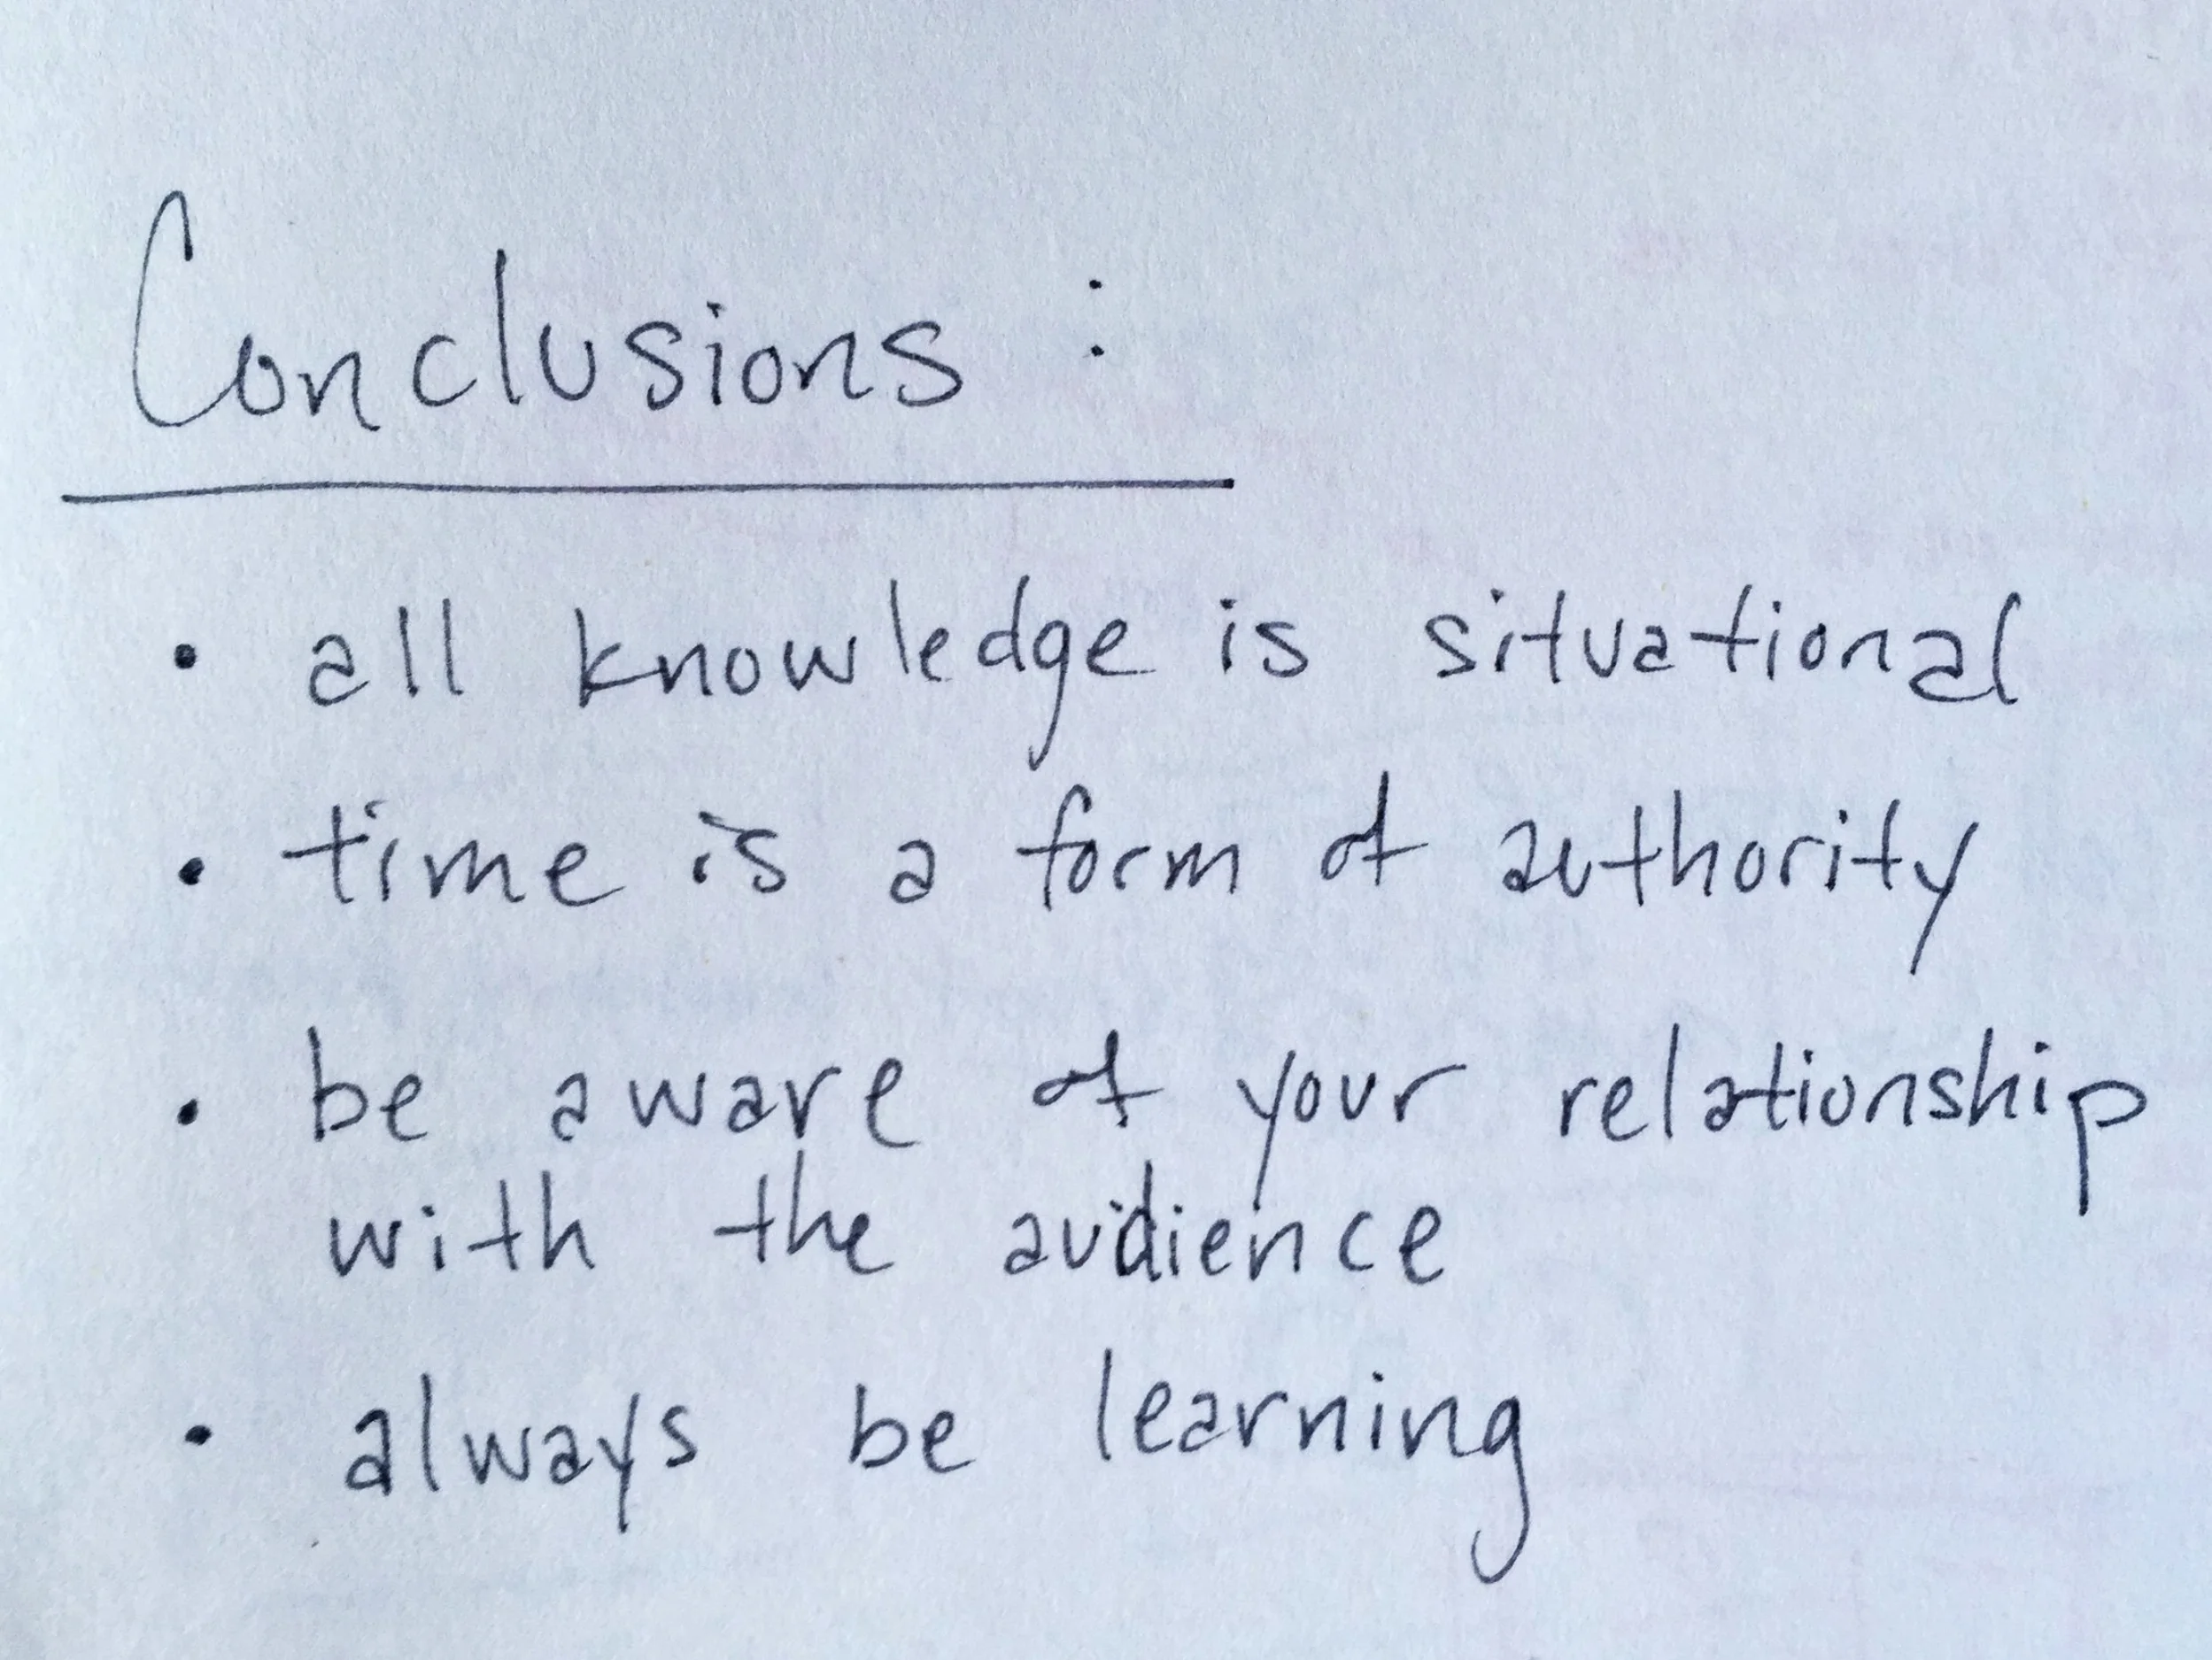 Conclusions :
• all knowledge is situational
• time is a form of authority
• be aware of your relationship
with the audience
• always be learning